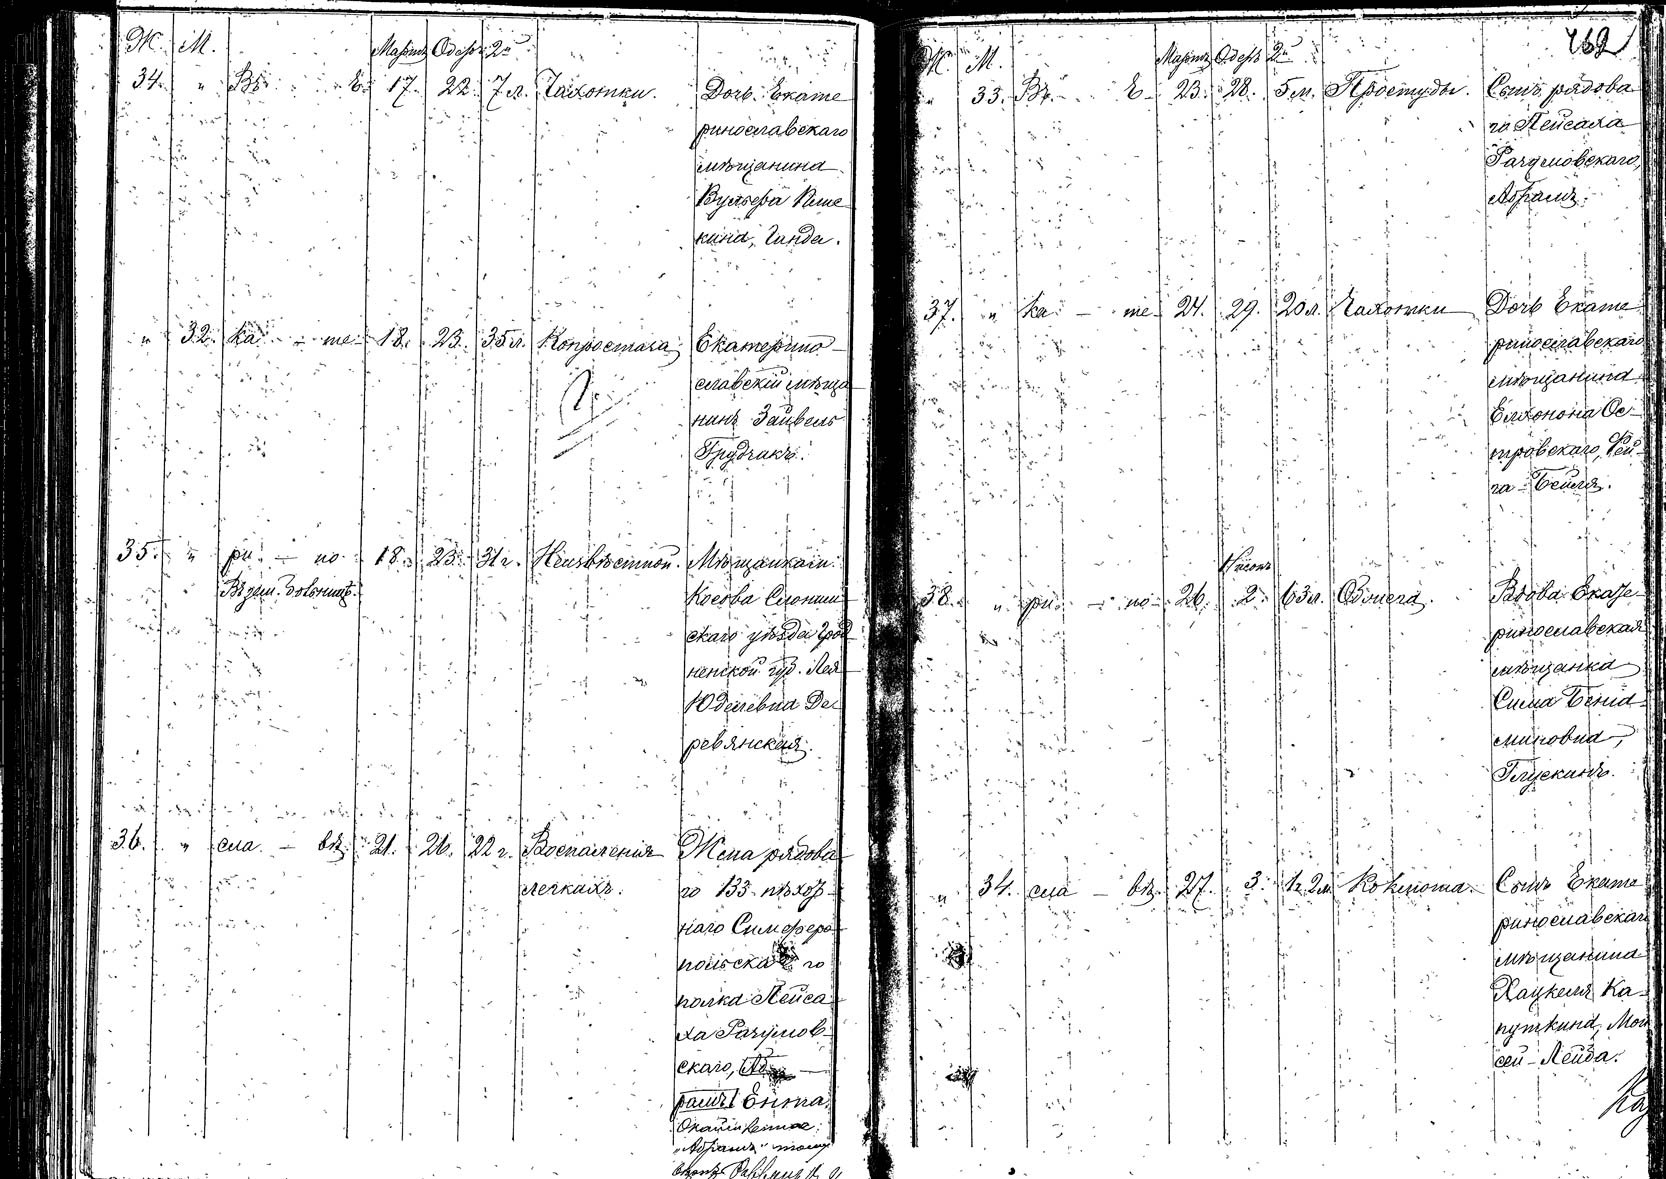 Ж. М. Мартъ Одеръ 2й
34. " Въ Е. 17. 22. 7 л. Чахотки. Дочь Екате
ринославскаго
мѣщанина
Вульфа
кина, Гинда.
" 32. ка - те 18. 23. 35 л. Екатерино-
славскій мѣща
нинъ Зайвель
Грудчакъ.
35. " ри - но 18. 23. 31 г. Неизвѣстной. Мѣщанка м.
Въ зем. больницѣ. Косова Слоним-
скаго уѣзда Грод
ненской губ. Лея
Юделевна Де-
ревянская.
36. " сла - вѣ 21. 26. 22 г. Воспаленія Жена рядова-
легкихъ. го 133 пѣхот-
наго Симферо-
польска го
полка Пейса-
ха Разумов-
скаго, Аб-
рамъ Ента.
"Абрамъ"
Ж. М. Мартъ Одеръ 2й
" 33. Въ - Е - 23. 28. 5 м. Простуды. Сынъ рядова-
го Пейсаха
Разумовскаго,
Абрамъ.
37. " ка - те 24. 29. 20 л. Чахотки Дочь Екате
ринославскаго
мѣщанина
Елхонона Ос-
тровскаго, Фей-
га-Бейля.
Нисонъ
38. " ри - но 26. 2. 63 л. Вдова Екате
ринославская
мѣщанка
Сима Бениа-
миновна,
Глускинъ.
" 34. сла - вѣ 27. 3. 1 г. 2 м. Коклюша. Сынъ Екате
ринославскаго
мѣщанина
Хацкеля Ка-
путкина, Мои
сей-Лейба.